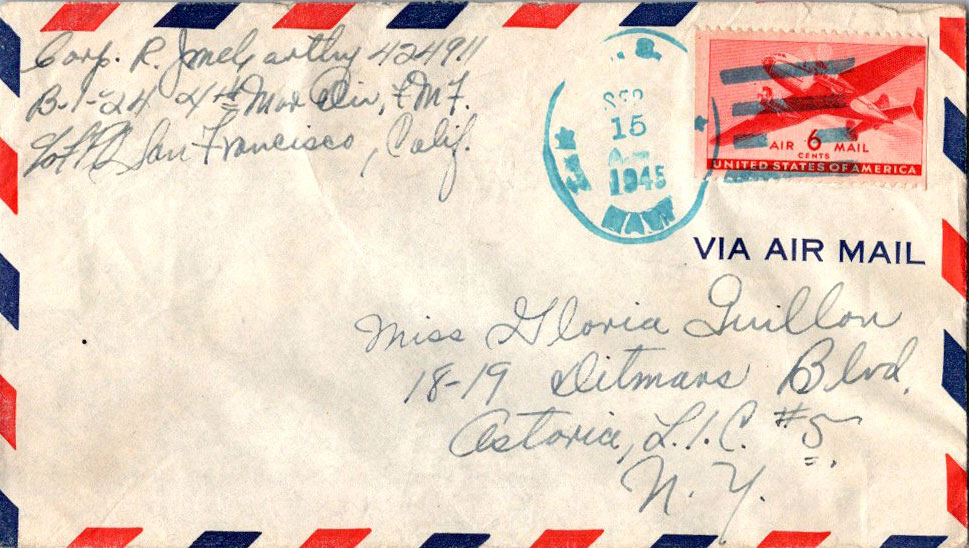 Corp. R. J. McCarthy 424911
B-1-24 4th Mar Div, F.M.F.
℅ F.P.O. San Francisco, Calif.
U.S.
SEP
15
A.M.
1945
NAVY
AIR 6 MAIL
CENTS
UNITED STATES OF AMERICA
VIA AIR MAIL
Miss Gloria Guillon
18-19 Ditmars Blvd.
Astoria, L.I.C. #5
N.Y.